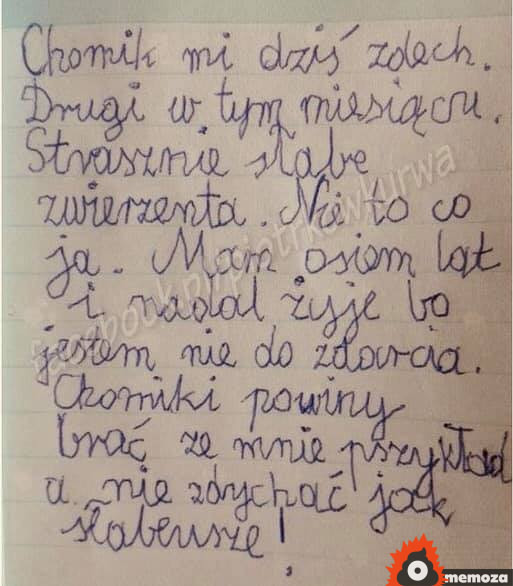 Chomik mi dziś zdech.
Drugi w tym miesiącu.
Strasznie słabe
zwierzenta. Nie to co
ja. Mam osiem lat
i nadal żyje bo
jestem nie do zdarcia.
Chomiki powiny
brać ze mnie pszykład
a nie zdychać jak
słabeusze!
facebook.pl/piotrkowkurwa
memoza